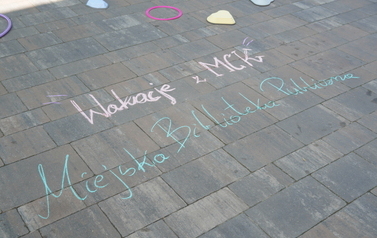 Wakacje z MCK
Miejska Biblioteka Publiczna